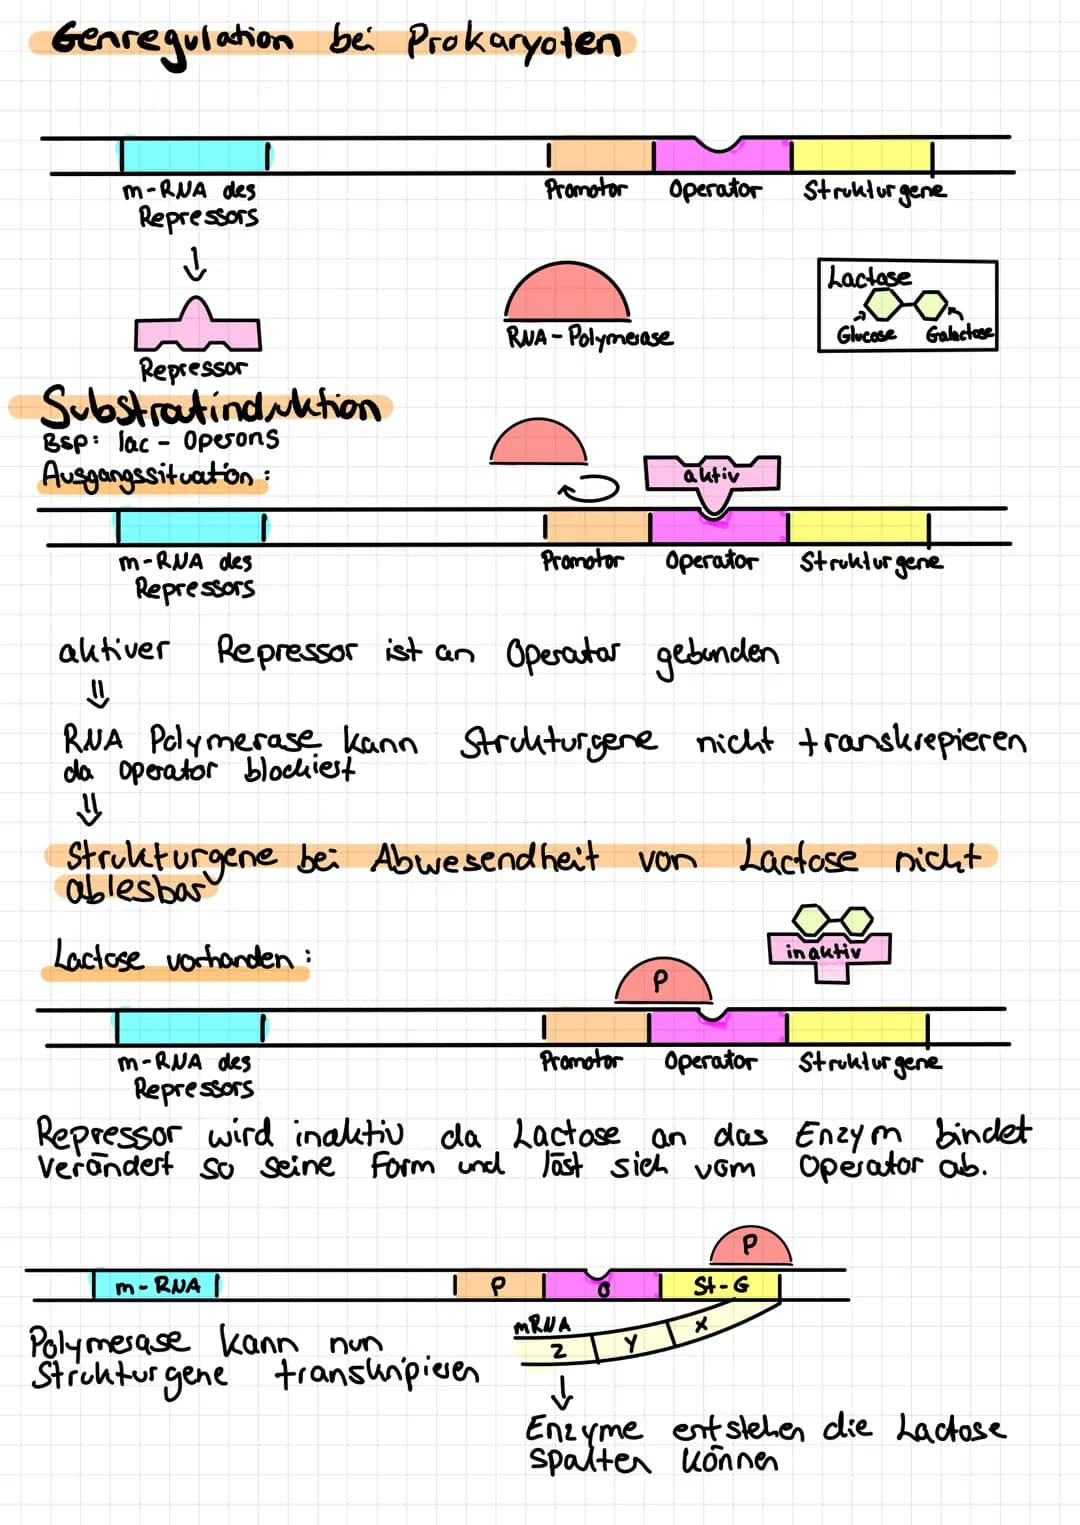 Genregulation bei Prokaryoten
m-RNA des
Repressors
Promotor
Operator
Strukturgene
Repressor
RNA-Polymerase
Lactose
Glucose
Galactose
Substratinduktion
Bsp: lac - Operons
Ausgangssituation:
aktiv
m-RNA des
Repressors
Promotor
Operator
Strukturgene
aktiver Repressor ist an Operator gebunden
RNA Polymerase kann Strukturgene nicht transkrepieren
da Operator blockiert
Strukturgene bei Abwesendheit von Lactose nicht
ablesbar
Lactose vorhanden:
P
inaktiv
m-RNA des
Repressors
Promotor
Operator
Strukturgene
Repressor wird inaktiv da Lactose an das Enzym bindet
verändert so seine Form und löst sich vom Operator ab.
P
m-RNA
P
O
St-G
mRNA
Z
Y
X
Polymerase kann nun
Strukturgene transkripieren
Enzyme entstehen die Lactose
spalten können